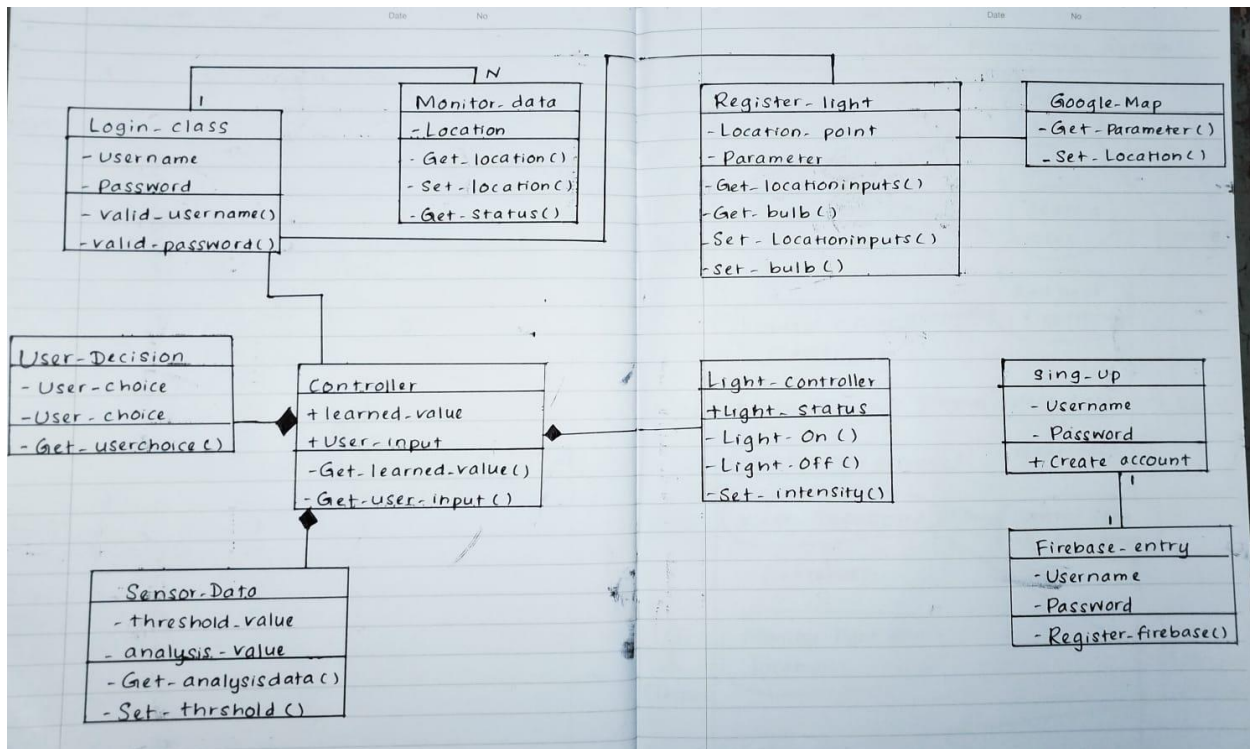 Date No
Date No
1
N
Login_class
- Username
- Password
- valid_username()
- valid_password()
Monitor_data
- Location
- Get_location()
- Set_location()
- Get_status()
Register_light
- Location_point
- Parameter
- Get_locationinputs()
- Get_bulb()
- Set_Locationinputs()
- Set_bulb()
Google_Map
- Get_Parameter()
- Set_Location()
User_Decision
- User_choice
- User_choice
- Get_userchoice()
Controller
+ learned_value
+ User_input
- Get_learned_value()
- Get_user_input()
Light_controller
+ Light_status
- Light_On()
- Light_Off()
- Set_intensity()
Sing_Up
- Username
- Password
+ Create account
1
1
Firebase_entry
- Username
- Password
- Register_firebase()
Sensor_Data
- threshold_value
- analysis_value
- Get_analysisdata()
- Set_thrshold()